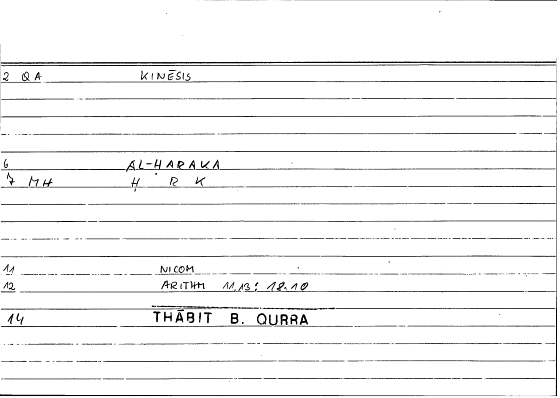 2 QA KINĒSIS
6 AL-ḤARAKA
7 MH Ḥ R K
11 NICOM
12 ARITHM 11.13: 18.10
14 THĀBIT B. QURRA